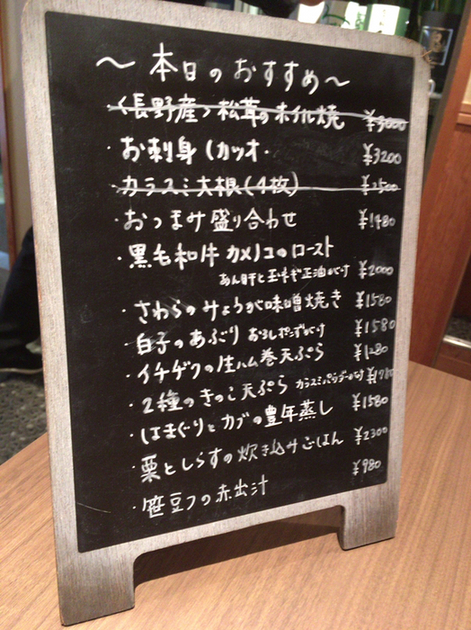 〜本日のおすすめ〜
・〈長野産〉松茸のホイル焼 ¥3000
・お刺身(カツオ・ ¥3200
・カラスミ大根(4枚) ¥2500
・おつまみ盛り合わせ ¥1480
・黒毛和牛カメノコのロースト
あん肝と玉ネギ正油がけ ¥2000
・さわらのみょうが味噌焼き ¥1580
・白子のあぶり おろしポンズがけ ¥1580
・イチヂクの生ハム巻天ぷら ¥1280
・2種のきのこ天ぷら カラスミパウダーがけ ¥1780
・はまぐりとカブの豊年蒸し ¥1580
・栗としらすの炊き込みごはん ¥2300
・笹豆フの赤出汁 ¥980